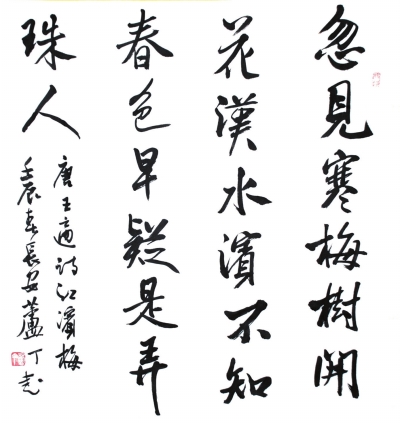 忽見寒梅樹開
花漢水濱不知
春色早疑是弄
珠人
唐王適詩江濱梅
壬辰春長安蘆丁书